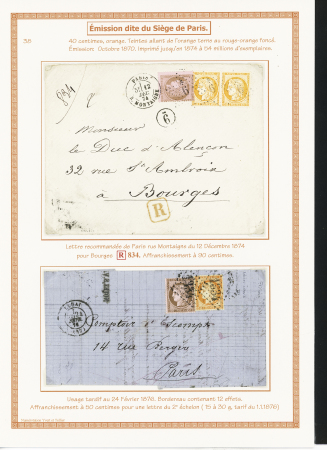 Émission dite du Siège de Paris.
38
40 centimes, orange, teintes allant de l'orange terne au rouge-orange foncé.
Émission : Octobre 1870. Imprimé jusqu'en 1874 à 54 millions d'exemplaires.
834
PARIS
12
R. MONTAIGNE
9
Monsieur
le Duc d'Alençon
32 rue St Ambroix
à Bourges
R
Lettre recommandée de Paris rue Montaigne du 12 Décembre 1874
pour Bourges R 834. Affranchissement à 90 centimes.
Comptoir d'Escompte
14 rue Bergère
Paris
Usage tardif au 24 Février 1876. Bordereau contenant 12 effets.
Affranchissement à 50 centimes pour une lettre du 2e échelon (15 à 30 g, tarif du 1.1.1876)